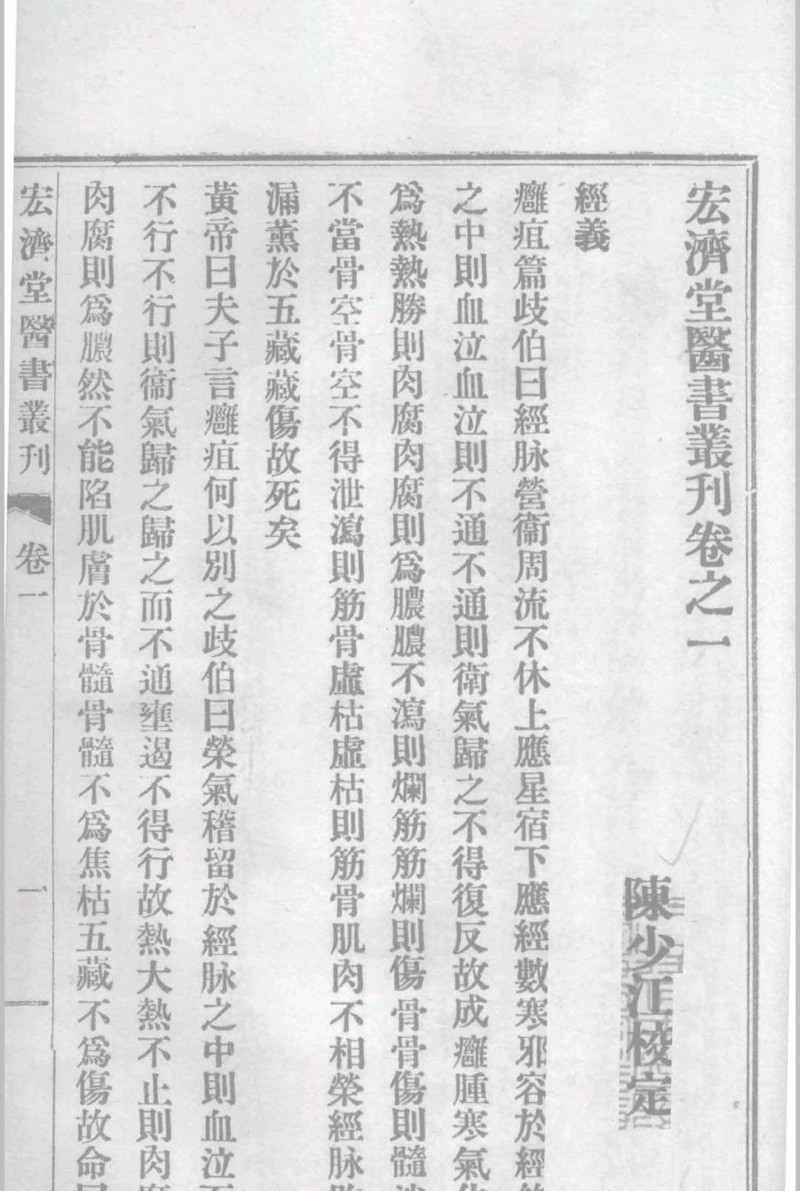 宏濟堂醫書叢刊卷之一
陳少江校定
經義
癰疽篇歧伯曰經脉營衞周流不休上應星宿下應經數寒邪容於經
之中則血泣血泣則不通不通則衛氣歸之不得復反故成癰腫寒氣
爲熱熱勝則肉腐肉腐則爲膿膿不瀉則爛筋筋爛則傷骨骨傷則髓
不當骨空骨空不得泄瀉則筋骨虛枯虛枯則筋骨肌肉不相榮經脉
漏薰於五藏藏傷故死矣
黃帝曰夫子言癰疽何以別之歧伯曰榮氣稽留於經脉之中則血泣
不行不行則衞氣歸之歸之而不通壅遏不得行故熱大熱不止則肉
肉腐則爲膿然不能陷肌膚於骨髓骨髓不爲焦枯五藏不爲傷故命
宏濟堂醫書叢刊 卷一 一